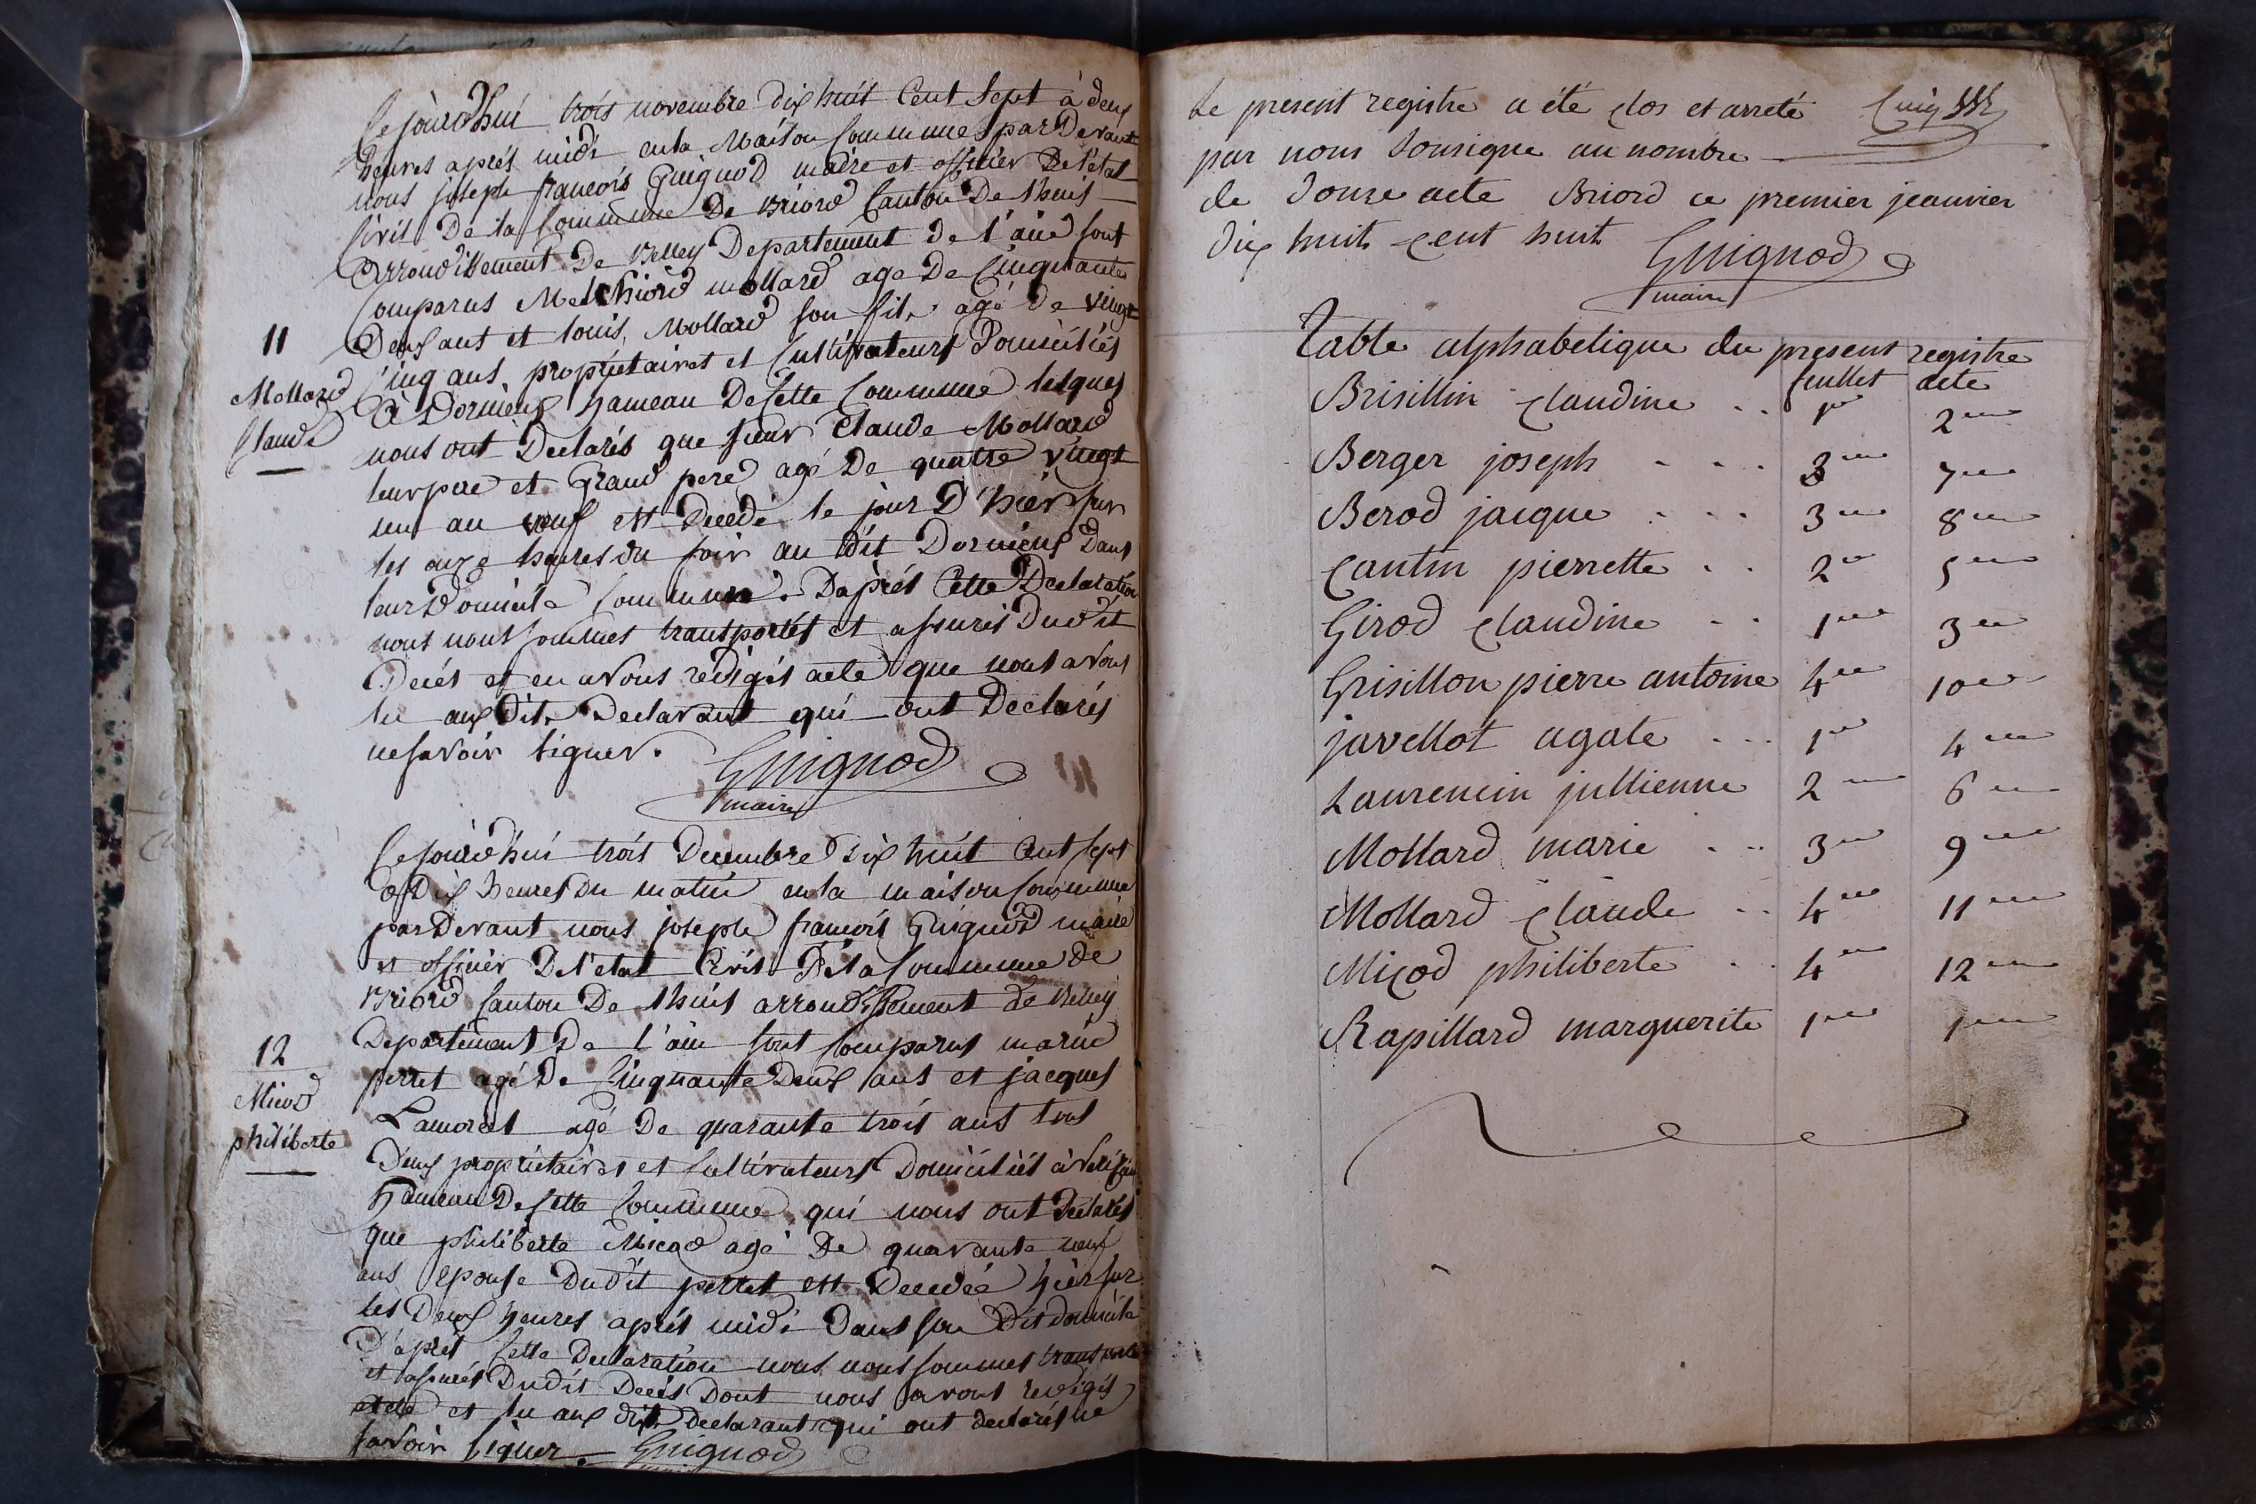 Cejourd'hui trois novembre dix huit Cent Sept à deux
heures aprés midi en la Maison Commune par Devant
nous joseph francois Guignod maire et officier De l'etat
Civil De la Commune De Briord Canton De Lhuis
Arrondissement De Belley Departement De l'ain sont
Comparus Melchiord mollard age De Cinquante
Deux ans et louis Mollard son fils agé de vingt
Cinq ans, proprietaires et Cultivateurs Domiciliés
11
à Dornieux hameau De Cette Commune lesquels
Mollard
Claude
nous ont Declarés que sieur Claude Mollard
leur pere et Grand pere agé De quatre vingt
un an veuf est Decedé le jour D'hiér sur
les onze heures du soir au dit Dornieux Dans
leur Domicile Commun. Daprés Cette Declaration
nous nous sommes transportés et assurés Dudit
Decés et en avons redigés acte que nous avons
lu aux Dits Declarant qui ont Declarés
ne savoir signer.
Guignod
maire
Cejourd'hui trois Decembre Dix huit Cent Sept
à Dix heures Du matin en la maison Commune
par Devant nous joseph francois Guignod maire
et officier De l'etat Civil De la Commune De
Briord Canton De Lhuis arrondissement de Belley
Departement De l'ain sont Comparus marin
12
perret agé De Cinquante Deux ans et jacques
Micod
philiberte
Lamoret agé De quarante trois ans tous
Deux proprietaires et Cultivateurs Domiciliés à
hameau De Cette Commune qui nous ont Declarés
que philiberte Micod agé De quarante neuf
ans epouse Dudit perret est Decedée hiér sur
les Deux heures aprés midi Dans son Dit domicile
D'aprés Cette Declaration nous nous sommes transportés
et assurés Dudit Decés Dont nous avons redigés
acte et lu aux dits Declarant qui ont declarés ne
savoir signer. Guignod
maire
Le present registre a été clos et arreté
par nous Sousigne au nombre
de Douze acte Briord ce premier jeanvier
Dix huit cent huit Guignod
maire
Table alphabetique du present registre
feuillet acte
Brisillin claudine .. 1er 2me
Berger joseph . . . 3me 7me
Berod jacque . . . 3me 8me
Cantin pierrette . . 2me 5me
Girod claudine . . 1er 3me
Grisillon pierre antoine 4me 10me
javellot agate ... 1er 4me
Laurencin jullienne 2me 6me
Mollard marie ... 3me 9me
Mollard claude .. 4me 11me
Micod philiberte .. 4me 12me
Rapillard marguerite 1er 1er